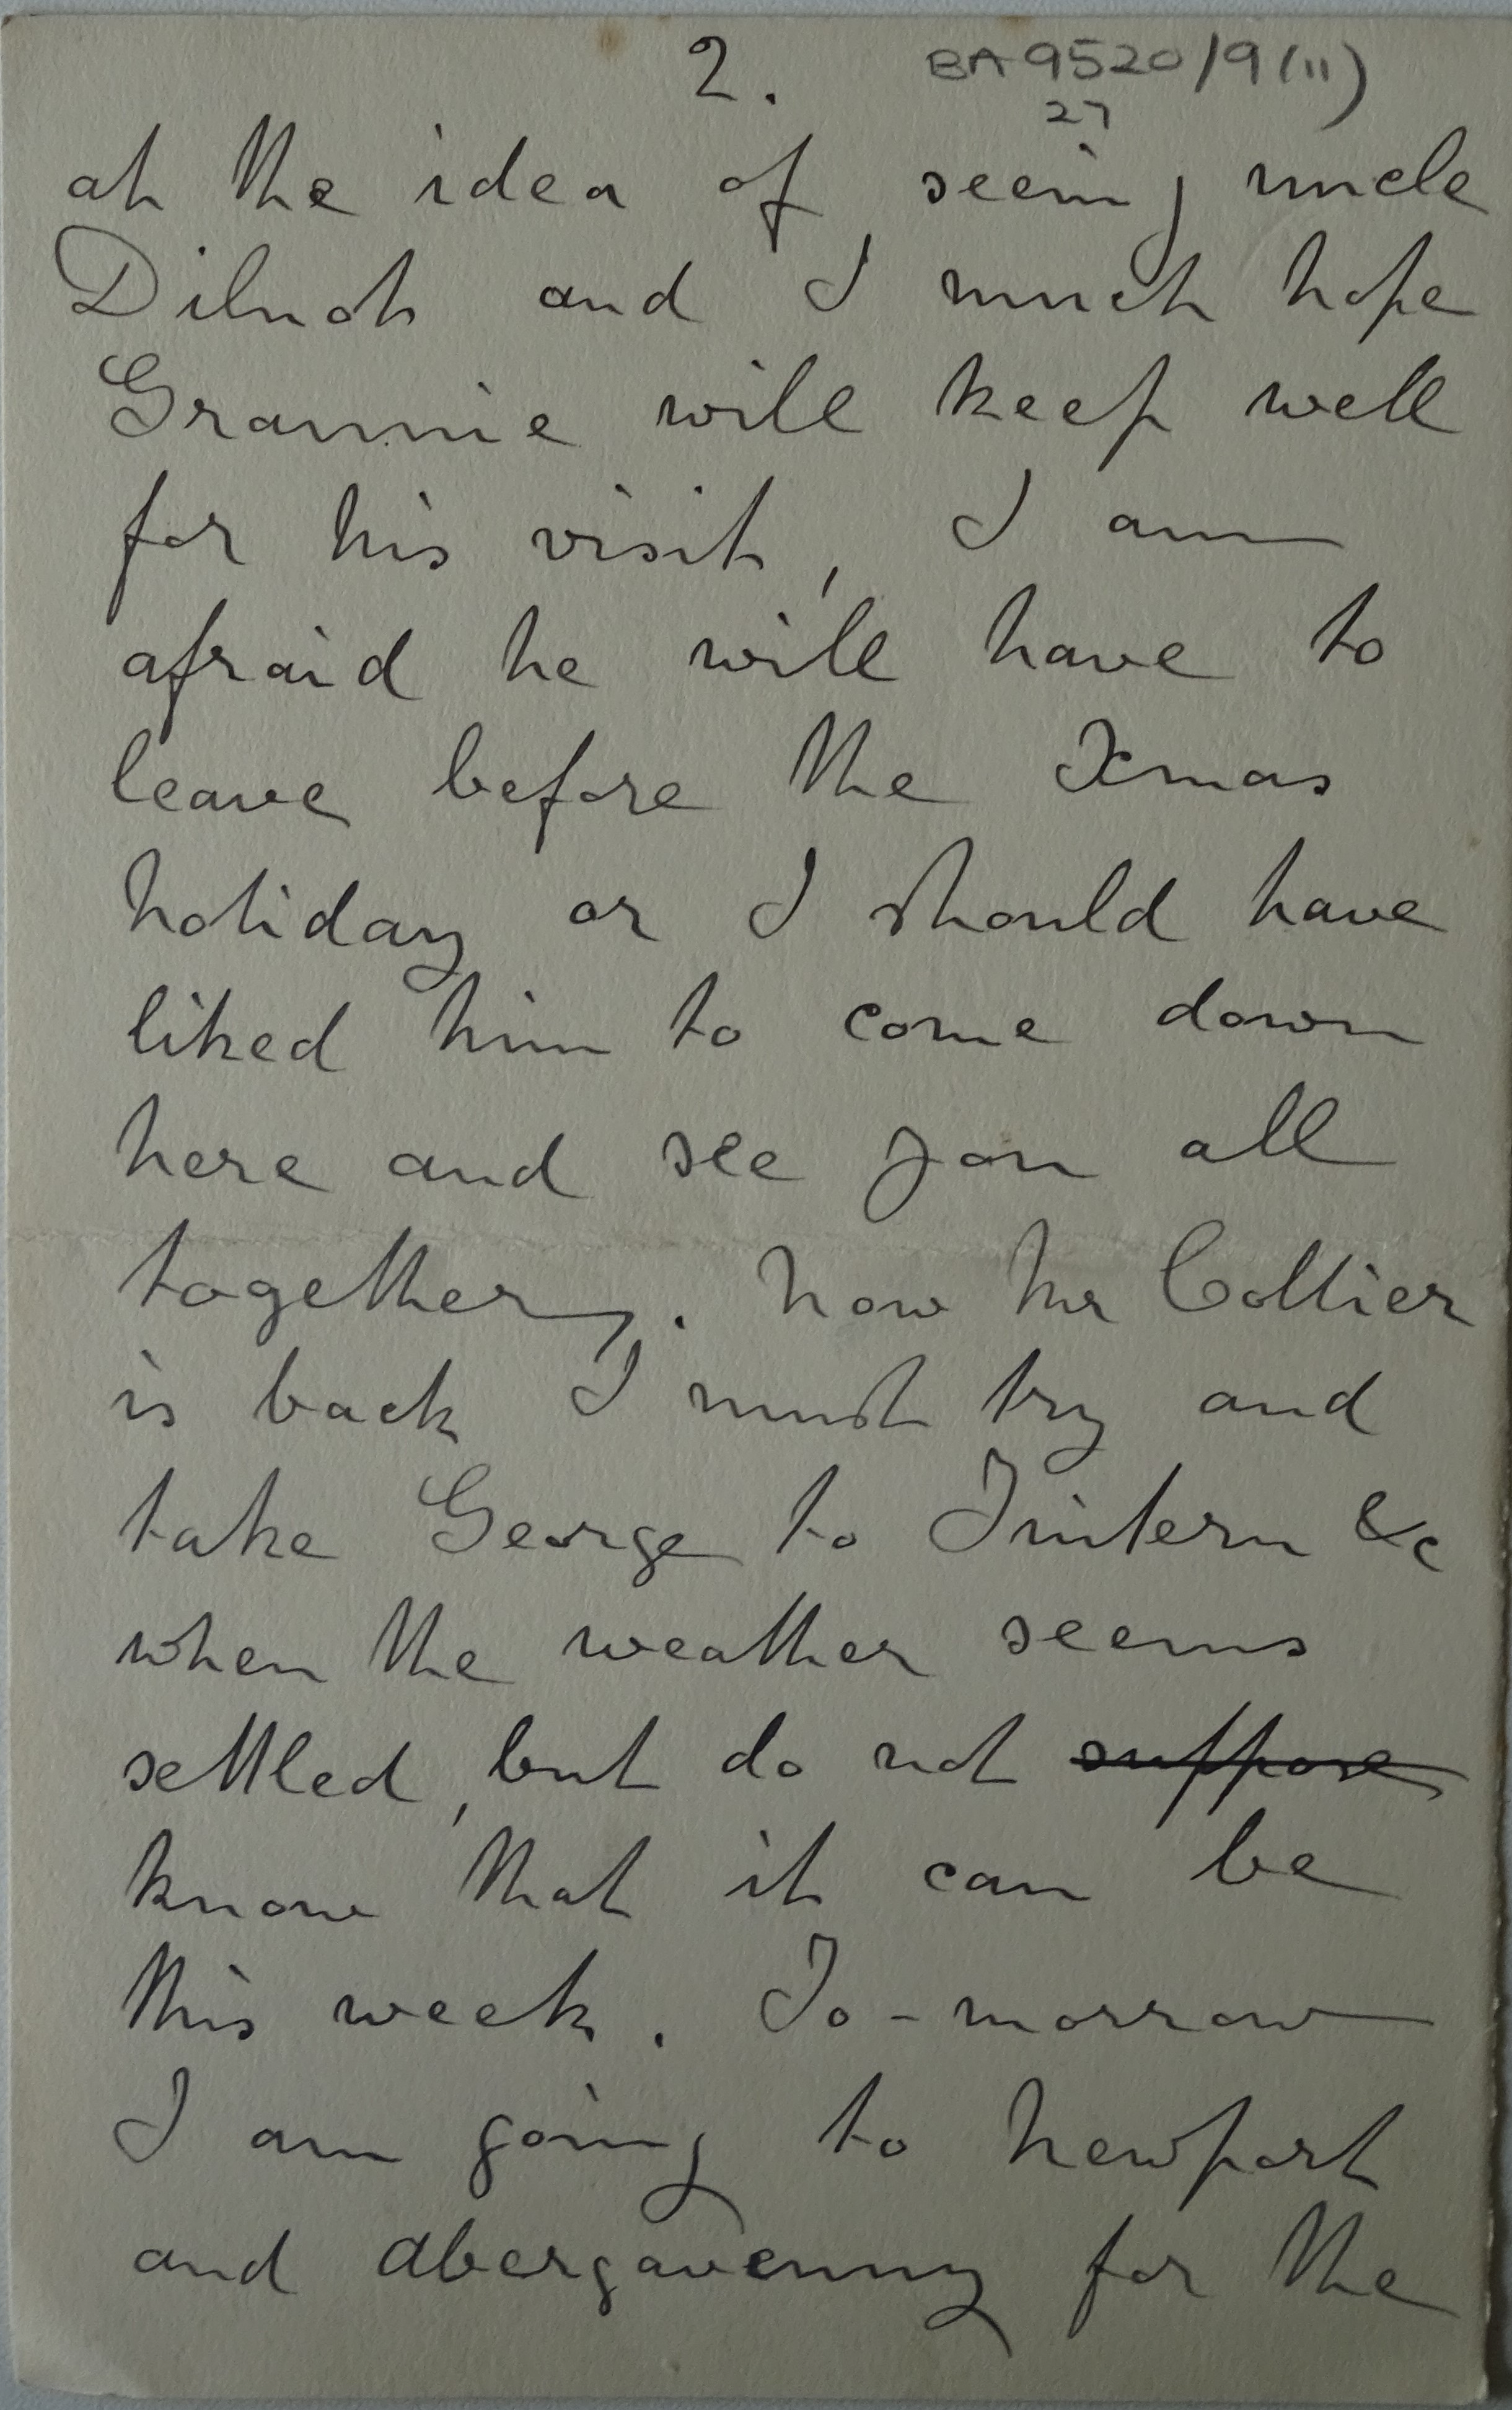 2.
BA 9520/9(11)
27
at the idea of seeing uncle
Dilnot and I much hope
Grannie will keep well
for his visit, I am
afraid he will have to
leave before the Xmas
holiday or I should have
liked him to come down
here and see you all
together. Now Mr Collier
is back I must try and
take George to Tintern &c
when the weather seems
settled, but do not suppose
know that it can be
this week. To-morrow
I am going to Newport
and Abergavenny for the